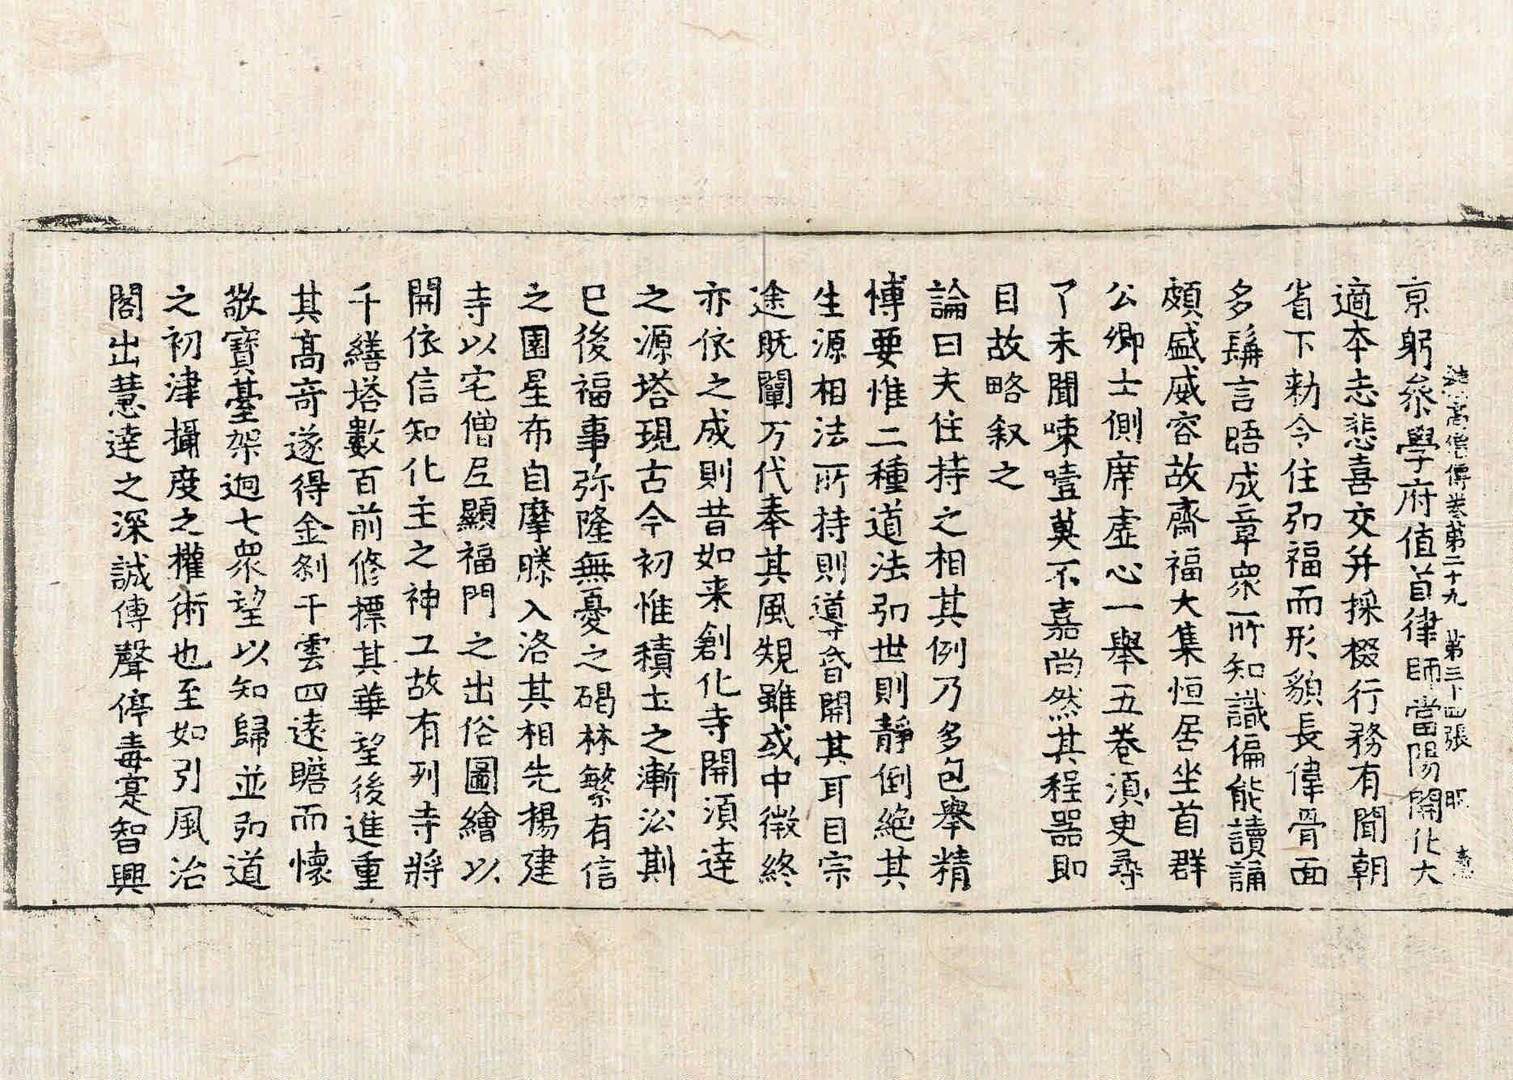 續高僧傳卷第二十九 第三十四張 既
京躬祭學府值首律師當陽開化大
適本志悲喜交幷採掇行務有聞朝
省下勑令住弘福而形貌長偉骨面
多髯言晤成章衆所知識偏能讀誦
頗盛威容故齋福大集恒居坐首群
公卿士側席虛心一舉五卷須臾尋
了未聞唻噎莫不嘉尚然其程器即
目故略叙之
論曰夫住持之相其例乃多包舉精
博要惟二種道法弘世則靜倒絶其
生源相法所持則導昏開其耳目宗
途旣闡万代奉其風規雖或中徵終
亦依之成則昔如来創化寺開須達
之源塔現古今初惟積土之漸㳂斯
已後福事弥隆無憂之碣林繁有信
之園星布自摩騰入洛其相先揚建
寺以宅僧尼顯福門之出俗圖繪以
開依信知化主之神工故有列寺將
千繕塔數百前修標其華望後進重
其高奇遂得金剎干雲四遠瞻而懷
敬寶臺架迥七衆望以知歸並弘道
之初津攝度之權術也至如引風治
閣出慧達之深誠傳聲停毒寔智興